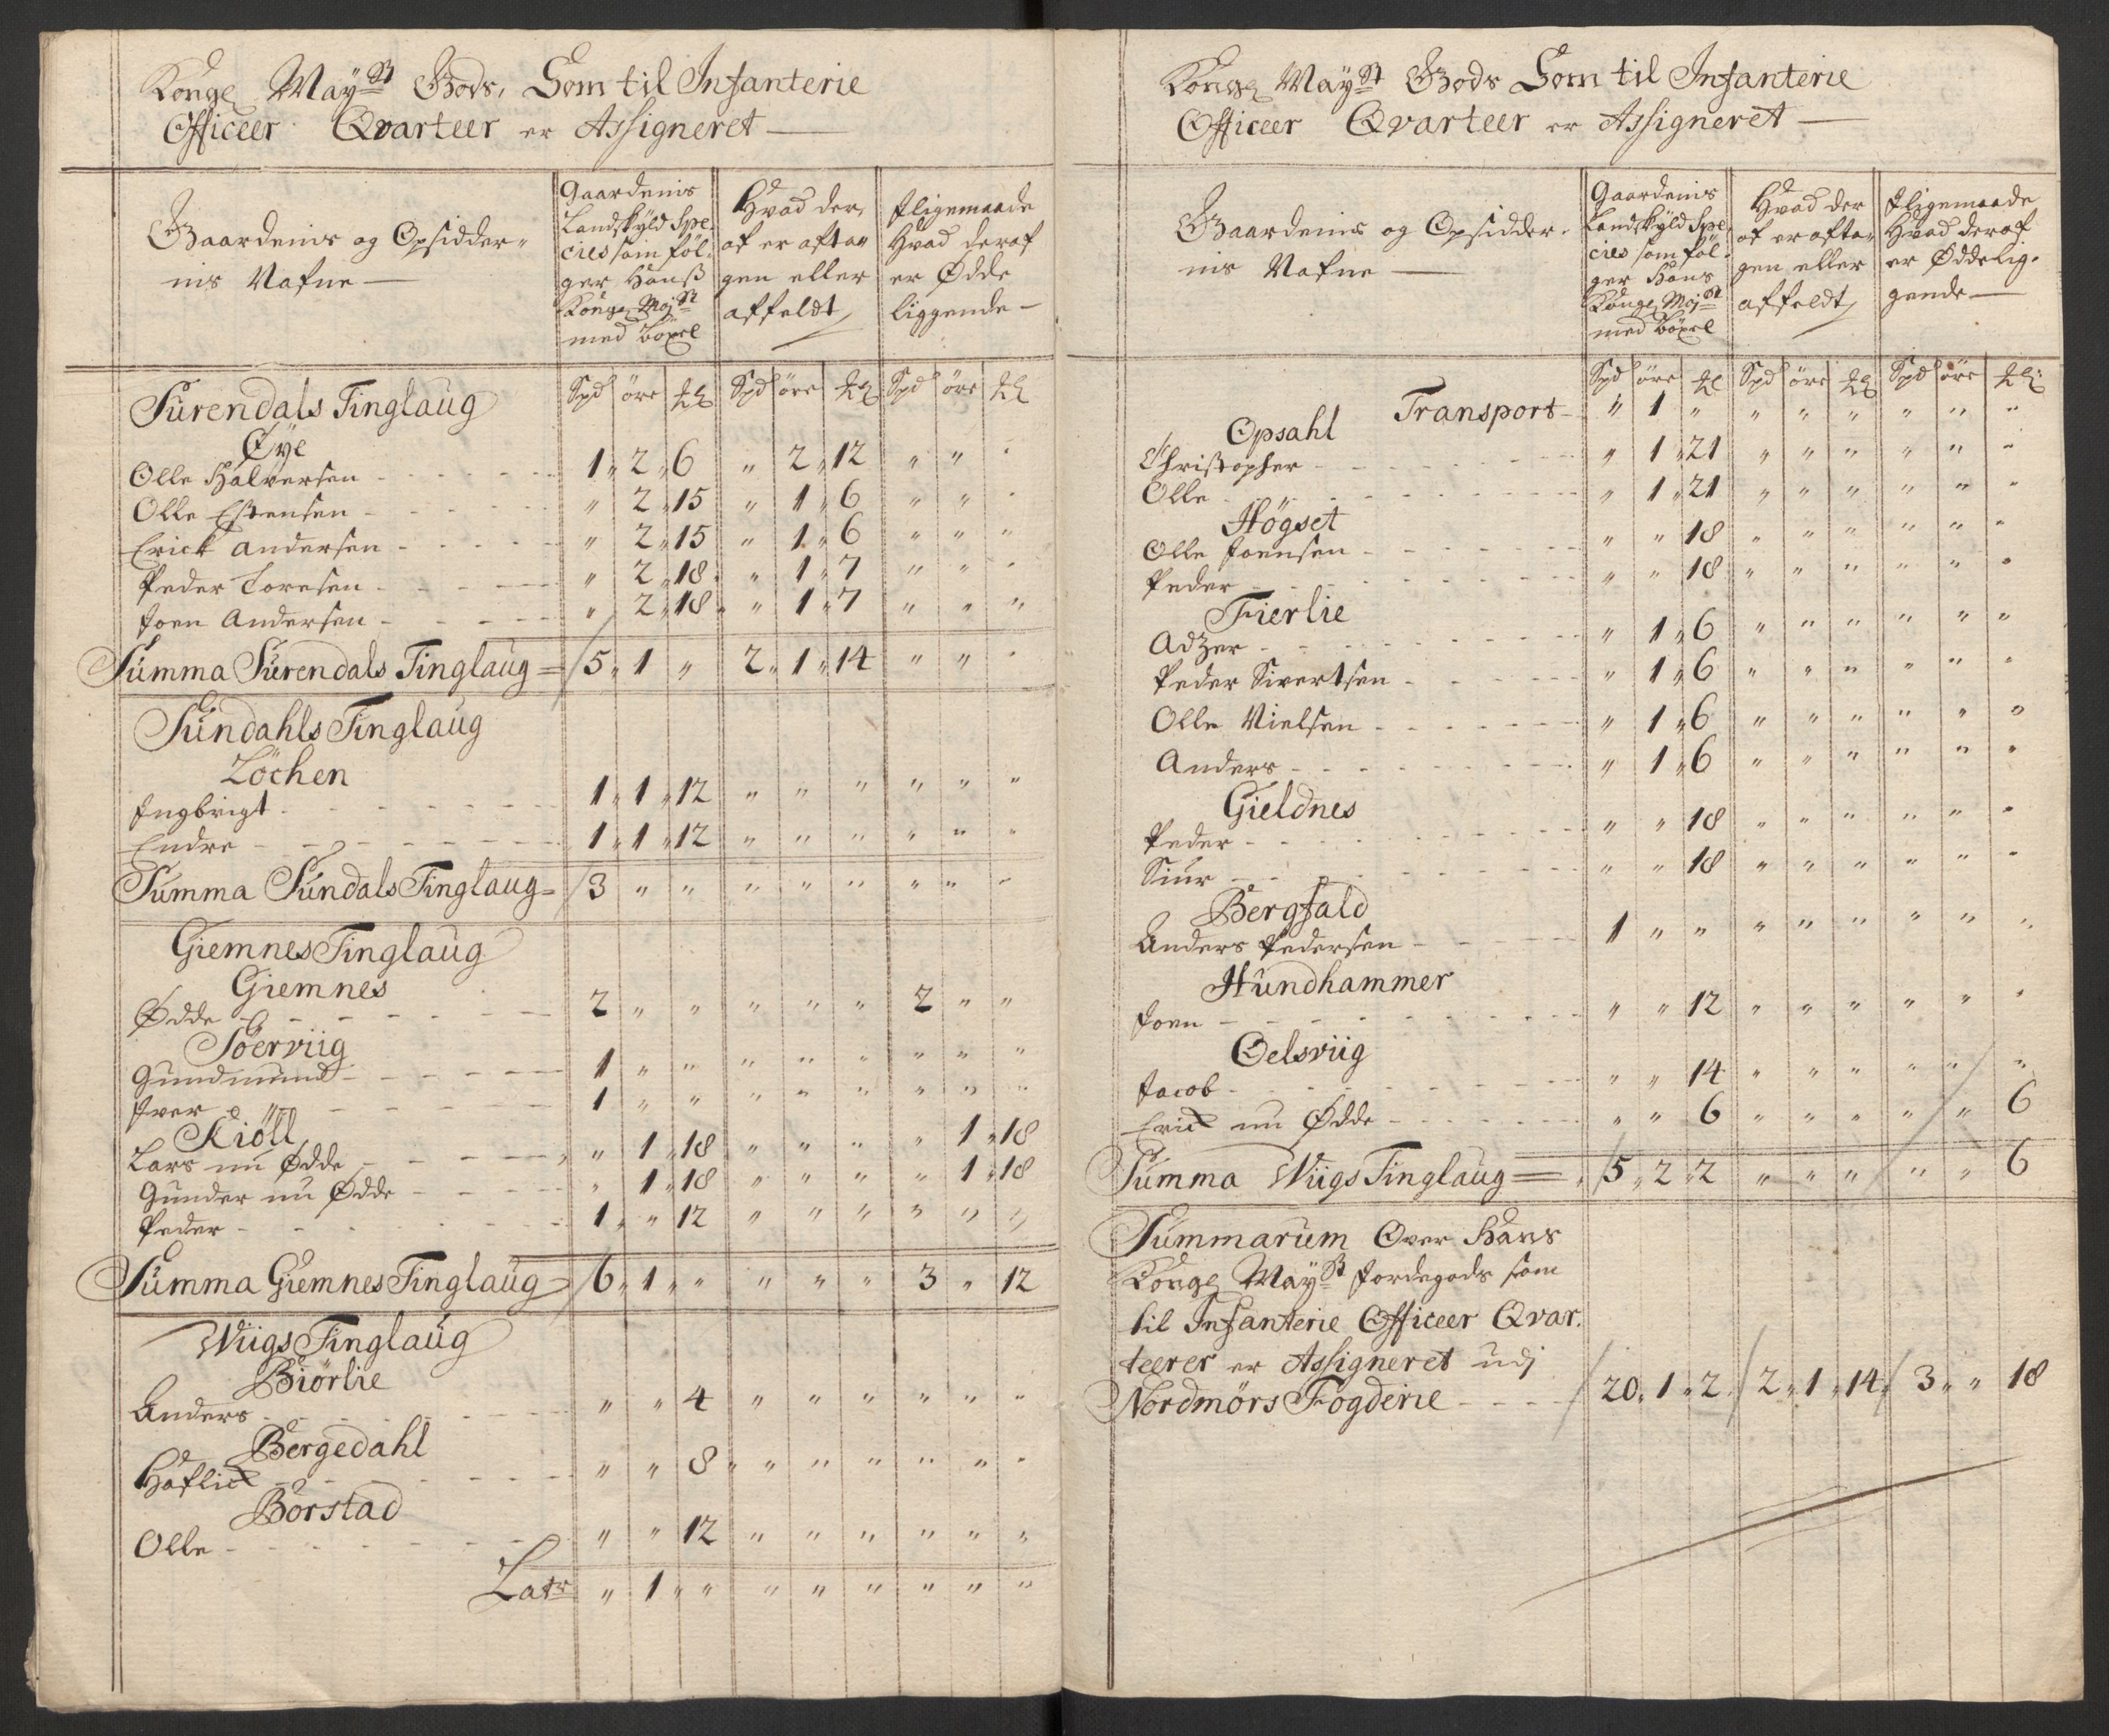 Kongl May:st Gods, Som til Infanterie
Officeer Qvarteer er Assigneret —
Gaardenis og Opsidder-
nis Nafne —
Gaardenis
Landskyld Spe-
cies som föl-
ger Hanß
Kongl May:st
med böxel
Hvad der
af er afta-
gen eller
affeldt
Iligemaade
Hvad deraf
er Ødde
liggende —
Spd öre ℔ Spd öre ℔ Spd öre ℔
Surendals Tinglaug
Øye
Olle Halversen - 1 „ 2 „ 6 „ 2 „ 12 „ „ „
Olle Estensen - „ 2 „ 15 „ 1 „ 6 „ „ „
Erick Andersen - „ 2 „ 15 „ 1 „ 6 „ „ „
Peder Toresen - „ 2 „ 18 „ 1 „ 7 „ „ „
Joen Andersen - „ 2 „ 18 „ 1 „ 7 „ „ „
Summa Surendals Tinglaug = 5 „ 1 „ 2 „ 1 „ 14 „ „ „
Sundahls Tinglaug
Löchen
Ingbrigt - 1 „ 1 „ 12 „ „ „ „ „ „
Endre - 1 „ 1 „ 12 „ „ „ „ „ „
Summa Sundals Tinglaug = 3 „ „ „ „ „ „ „ „
Giemnes Tinglaug
Giemnes
Ødde - 2 „ „ „ „ „ 2 „ „
Söerviig
Gundmund - 1 „ „ „ „ „ „ „ „
Iver - 1 „ „ „ „ „ „ „ „
Kiöll
Lars nu Ødde - „ 1 „ 18 „ „ „ „ 1 „ 18
Gunder nu Ødde - „ 1 „ 18 „ „ „ „ 1 „ 18
Peder - 1 „ „ 12 „ „ „ „ „ „
Summa Giemnes Tinglaug 6 „ 1 „ „ „ „ 3 „ 12
Wiigs Tinglaug
Biörlie
Anders - „ „ 4 „ „ „ „ „ „
Bergedahl
Haflick - „ „ 8 „ „ „ „ „ „
Börstad
Olle - „ „ 12 „ „ „ „ „ „
Latr „ 1 „ „ „ „ „ „ „
Kongl May:st Gods Som til Infanterie
Officeer Qvarteer er Assigneret —
Gaardenis og Opsidder-
nis Nafne —
Gaardenis
Landskyld Spe-
cies som föl-
ger Hans
Kongl May:st
med böxel
Hvad der
af er afta-
gen eller
affeldt
Iligemaade
Hvad deraf
er Ødde lig-
gende —
Spd öre ℔ Spd öre ℔ Spd öre ℔
Transport - „ 1 „ „ „ „ „ „ „
Opsahl
Christopher - „ 1 „ 21 „ „ „ „ „ „
Olle - „ 1 „ 21 „ „ „ „ „ „
Högset
Olle Joensen - „ „ 18 „ „ „ „ „ „
Peder - „ „ 18 „ „ „ „ „ „
Fierlie
Adzer - „ 1 „ 6 „ „ „ „ „ „
Peder Sivertsen - „ 1 „ 6 „ „ „ „ „ „
Olle Nielsen - „ 1 „ 6 „ „ „ „ „ „
Anders - „ 1 „ 6 „ „ „ „ „ „
Gieldnes
Peder - „ „ 18 „ „ „ „ „ „
Siur - „ „ 18 „ „ „ „ „ „
Bergfald
Anders Pedersen - 1 „ „ „ „ „ „ „ „
Hundhammer
Joen - „ „ 12 „ „ „ „ „ „
Oelsviig
Jacob - „ „ 14 „ „ „ „ „ „
Erick nu Ødde - „ „ 6 „ „ „ „ „ 6
Summa Wiigs Tinglaug = 5 „ 2 „ 2 „ „ „ „ „ 6
Summarum Over Hans
Kongl May:st Jordegods som
til Infanterie Officeer Qvar-
teerer er Assigneret udj
Nordmörs Fogderie - 20 „ 1 „ 2 2 „ 1 „ 14 3 „ „ 18